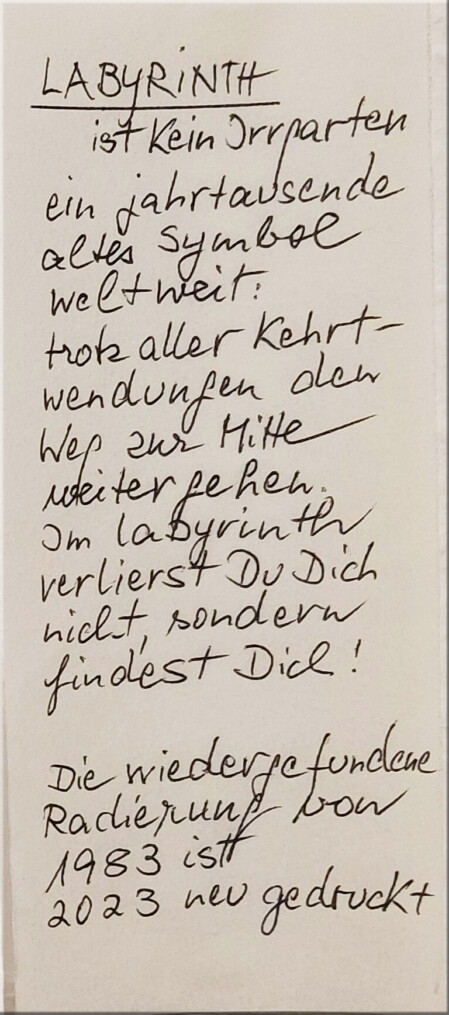 LAByRiNTH
ist kein Irrgarten
ein jahrtausende
altes Symbol
weltweit:
trotz aller Kehrt-
wendungen den
Weg zur Mitte
weiter gehen.
Im labyrinth
verlierst Du Dich
nicht, sondern
findest Dich!
Die wiedergefundene
Radierung von
1983 ist
2023 neu gedruckt